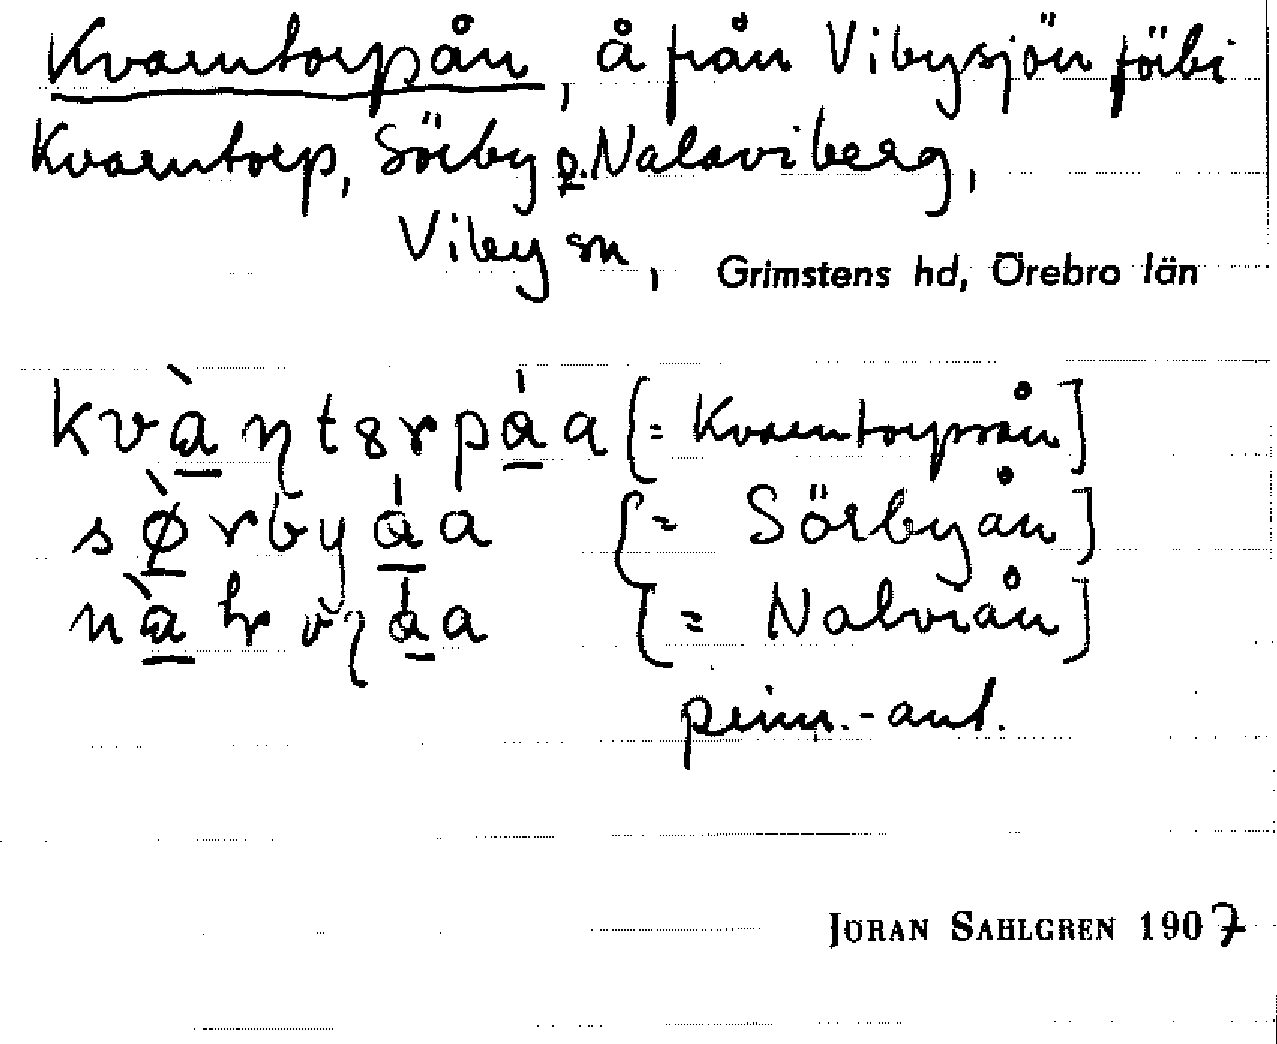 Kvarntorpån, å från Vibysjön förbi
Kvarntorp, Sörby o. Nalaviberg,
Viby sn, Grimstens hd, Örebro län
[= Kvarntorpsån]
[= Sörbyån]
[= Nalviån]
prim.-ant.
JÖRAN SAHLGREN 1907